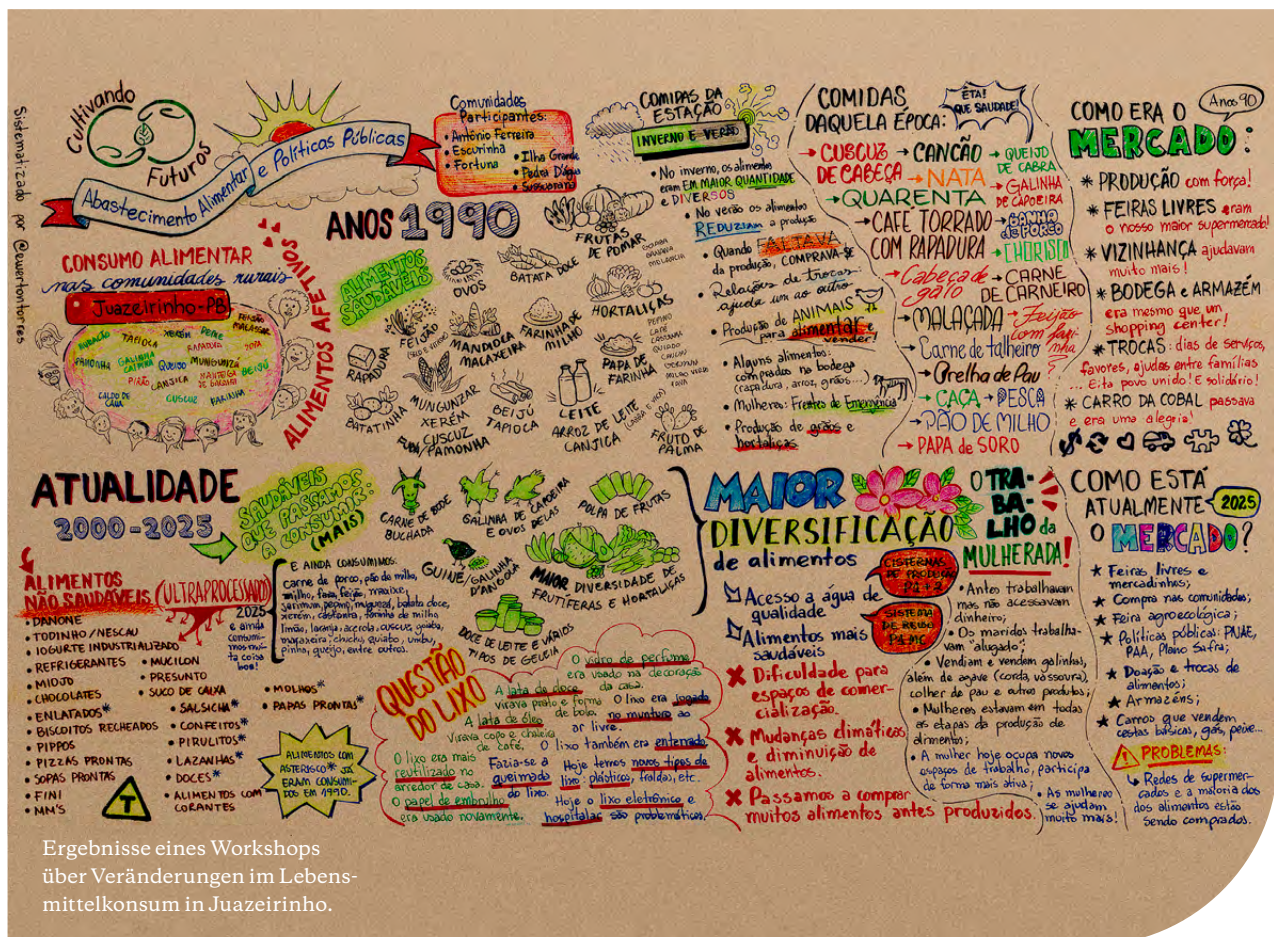 Sistematizado por @ewertontorres
Cultivando
Futuros
Abastecimento Alimentar e Políticas Públicas
Comunidades
Participantes:
• Antônio Ferreira
• Escurinha
• Fortuna
• Ilha Grande
• Pedra D'água
• Sussuarana
CONSUMO ALIMENTAR
nas comunidades rurais
Juazeirinho-PB
TAPIOCA
XERÉM
PEIXE
FEIJÃO
PAMONHA
GALINHA
CAIPIRA
QUEIJO
MUNGUNZÁ
BEIJÚ
PIRÃO
CANJICA
MANTEIGA
CALDO DE
CANA
CUSCUZ
FARINHA
ALIMENTOS AFETIVOS
ANOS 1990
ALIMENTOS
SAUDÁVEIS
OVOS
BATATA DOCE
FRUTAS
DE POMAR
FEIJÃO
MANDIOCA
MACAXEIRA
FARINHA DE
MILHO
HORTALIÇAS
RAPADURA
BATATINHA
MUNGUNZAR
XERÉM
CUSCUZ
PAMONHA
BEIJÚ
TAPIOCA
LEITE
ARROZ DE LEITE
CANJICA
PAPA DE
FARINHA
FRUTO DE
PALMA
COMIDAS DA
ESTAÇÃO
INVERNO E VERÃO
• No inverno, os alimentos
eram EM MAIOR QUANTIDADE
e DIVERSOS
• No verão os alimentos
REDUZIAM a produção
• Quando FALTAVA
da produção, COMPRAVA-SE
• Relações de trocas:
ajuda um ao outro
• Produção de ANIMAIS
para alimentar e
vender!
• Alguns alimentos:
comprados na bodega
(rapadura, arroz, grãos...)
• Mulheres: Frentes de Emergência
• Produção de grãos e
hortaliças
COMIDAS
DAQUELA ÉPOCA:
ÊTA!
QUE SAUDADE!
→ CUSCUZ
DE CABEÇA
→ CANCÃO
→ NATA
→ QUEIJO
DE CABRA
→ GALINHA
DE CAPOEIRA
→ QUARENTA
→ CAFÉ TORRADO
COM RAPADURA
→ BANHA
de PORCO
→ CHORISCO
→ Cabeça de
galo
→ CARNE
DE CARNEIRO
→ MALAÇADA
→ Feijão
com fari-
nha
→ Carne de talheiro
→ Orelha de Pau
→ CAÇA → PESCA
→ PÃO DE MILHO
→ PAPA de SORO
Anos 90
COMO ERA O
MERCADO:
* PRODUÇÃO com força!
* FEIRAS LIVRES eram
o nosso maior supermercado!
* VIZINHANÇA ajudavam
muito mais!
* BODEGA e ARMAZÉM
era mesmo que um
shopping center!
* TROCAS: dias de serviços,
favores, ajudas entre famílias
... Eita povo unido! E solidário!
* CARRO DA COBAL passava
e era uma alegria!
ATUALIDADE
2000-2025
SAUDÁVEIS
QUE PASSAMOS
A CONSUMIR:
(MAIS)
CARNE DE BODE
BUCHADA
GALINHA DE CAPOEIRA
E OVOS DELAS
POLPA DE FRUTAS
GUINÉ/GALINHA
D'ANGOLA
MAIOR DIVERSIDADE DE
FRUTÍFERAS E HORTALIÇAS
DOCE DE LEITE E VÁRIOS
TIPOS DE GELEIA
ALIMENTOS
NÃO SAUDÁVEIS (ULTRAPROCESSADO)
2025
e ainda
consumi-
mos mui-
ta coisa
boa!
E AINDA CONSUMIMOS:
carne de porco, pão de milho,
milho, fava, feijão, maxixe,
jerimum, pepino, munguzal, batata doce,
xerém, castanha, farinha de milho
limão, laranja, acerola, cuscuz, goiaba,
macaxeira, chuchu, quiabo, umbu,
pinha, queijo, entre outros.
• DANONE
• TODINHO/NESCAU
• IOGURTE INDUSTRIALIZADO
• REFRIGERANTES
• MIOJO
• CHOCOLATES
• ENLATADOS*
• BISCOITOS RECHEADOS
• PIPPOS
• PIZZAS PRONTAS
• SOPAS PRONTAS
• FINI
• MM'S
• MUCILON
• PRESUNTO
• SUCO DE CAIXA
• SALSICHA*
• CONFEITOS*
• PIRULITOS*
• LAZANHAS*
• DOCES*
• ALIMENTOS COM
CORANTES
• MOLHOS*
• PAPAS PRONTAS*
T
ALIMENTOS COM
ASTERISCO* JÁ
ERAM CONSUMI-
DOS EM 1990.
QUESTÃO
DO LIXO
O vidro de perfume
era usado na decoração
da casa.
A lata de doce
virava prato e forma
de bolo.
A lata de óleo
Virava copo e chaleira
de café.
O lixo era jogado
no munturo ao
ar livre.
O lixo era mais
reutilizado no
arredor de casa.
O papel de embrulho
era usado novamente.
Fazia-se a
queimado
do lixo.
O lixo também era enterrado.
Hoje temos novos tipos de
lixo: plásticos, fraldas, etc.
Hoje o lixo eletrônico e
hospitalar são problemáticos.
MAIOR
DIVERSIFICAÇÃO
de alimentos
Acesso a água de
qualidade
Alimentos mais
saudáveis
CISTERNAS
DE PRODUÇÃO
P1+2
SISTEMA
DE REÚSO
P1MC
✖ Dificuldade para
espaços de comer-
cialização.
✖ Mudanças climáticas
e diminuição de
alimentos.
✖ Passamos a comprar
muitos alimentos antes produzidos.
O TRA-
BA-
LHO da
MULHERADA!
• Antes trabalhavam
mas não acessavam
dinheiro;
• Os maridos trabalha-
vam "alugado";
• Vendiam e vendem galinhas,
além de agave (corda, vassoura),
colher de pau e outros produtos;
• Mulheres estavam em todas
as etapas da produção de
alimentos;
• A mulher hoje ocupa novos
espaços de trabalho, participa
de forma mais ativa;
• As mulheres
se ajudam
muito mais!
COMO ESTÁ
ATUALMENTE 2025
O MERCADO?
★ Feiras livres e
mercadinhos;
★ Compra nas comunidades;
★ Feira agroecológica;
★ Políticas públicas: PNAE,
PAA, Plano Safra;
★ Doação e trocas de
alimentos;
★ Armazéns;
★ Carros que vendem
cestas básicas, gás, peixe...
PROBLEMAS:
↳ Redes de supermer-
cados e a maioria dos
dos alimentos estão
sendo comprados.
Ergebnisse eines Workshops
über Veränderungen im Lebens-
mittelkonsum in Juazeirinho.